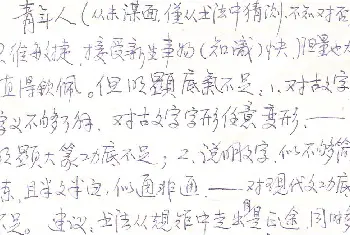 青年人(从未谋面,仅从书法中猜测,不知对否
思维敏捷,接受新生事物(知识)快,胆量也大
值得钦佩。但明显底气不足:1、对古文字
字义不够了解,对古文字字形任意变形,——
明显大篆功底不足;2、说明文字,似不够简
练,且半文半白,似通非通,——对现代文功底
不足。建议:书法从规矩中走出是正途,同时